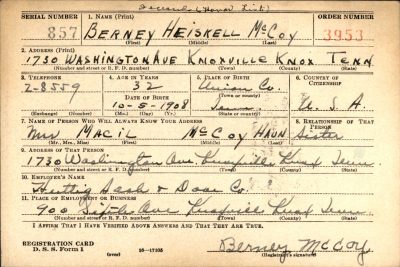 Deceased (Honor List)
SERIAL NUMBER 1. NAME (Print) ORDER NUMBER
857 BERNEY HEISKELL McCOY 3953
(First) (Middle) (Last)
2. ADDRESS (Print)
1730 WASHINGTON AVE KNOXVILLE KNOX TENN.
(Number and street or R. F. D. number) (Town) (County) (State)
3. TELEPHONE 4. AGE IN YEARS 5. PLACE OF BIRTH 6. COUNTRY OF CITIZENSHIP
2-8559 32 Union Co.
DATE OF BIRTH (Town or county)
10-5-1908 Tenn. U. S. A.
(Exchange) (Number) (Mo.) (Day) (Yr.) (State or country)
7. NAME OF PERSON WHO WILL ALWAYS KNOW YOUR ADDRESS 8. RELATIONSHIP OF THAT PERSON
Mrs MACIL McCOY HAUN Sister
(Mr., Mrs., Miss) (First) (Middle) (Last)
9. ADDRESS OF THAT PERSON
1730 Washington Ave. Knoxville Knox Tenn
(Number and street or R. F. D. number) (Town) (County) (State)
10. EMPLOYER'S NAME
Huttig Sash & Door Co.
11. PLACE OF EMPLOYMENT OR BUSINESS
900 Ave Knoxville Knox Tenn
(Number and street or R. F. D. number) (Town) (County) (State)
I AFFIRM THAT I HAVE VERIFIED ABOVE ANSWERS AND THAT THEY ARE TRUE.
REGISTRATION CARD
D. S. S. FORM 1 (over) 16-17105 Berney McCoy
(Registrant's signature)